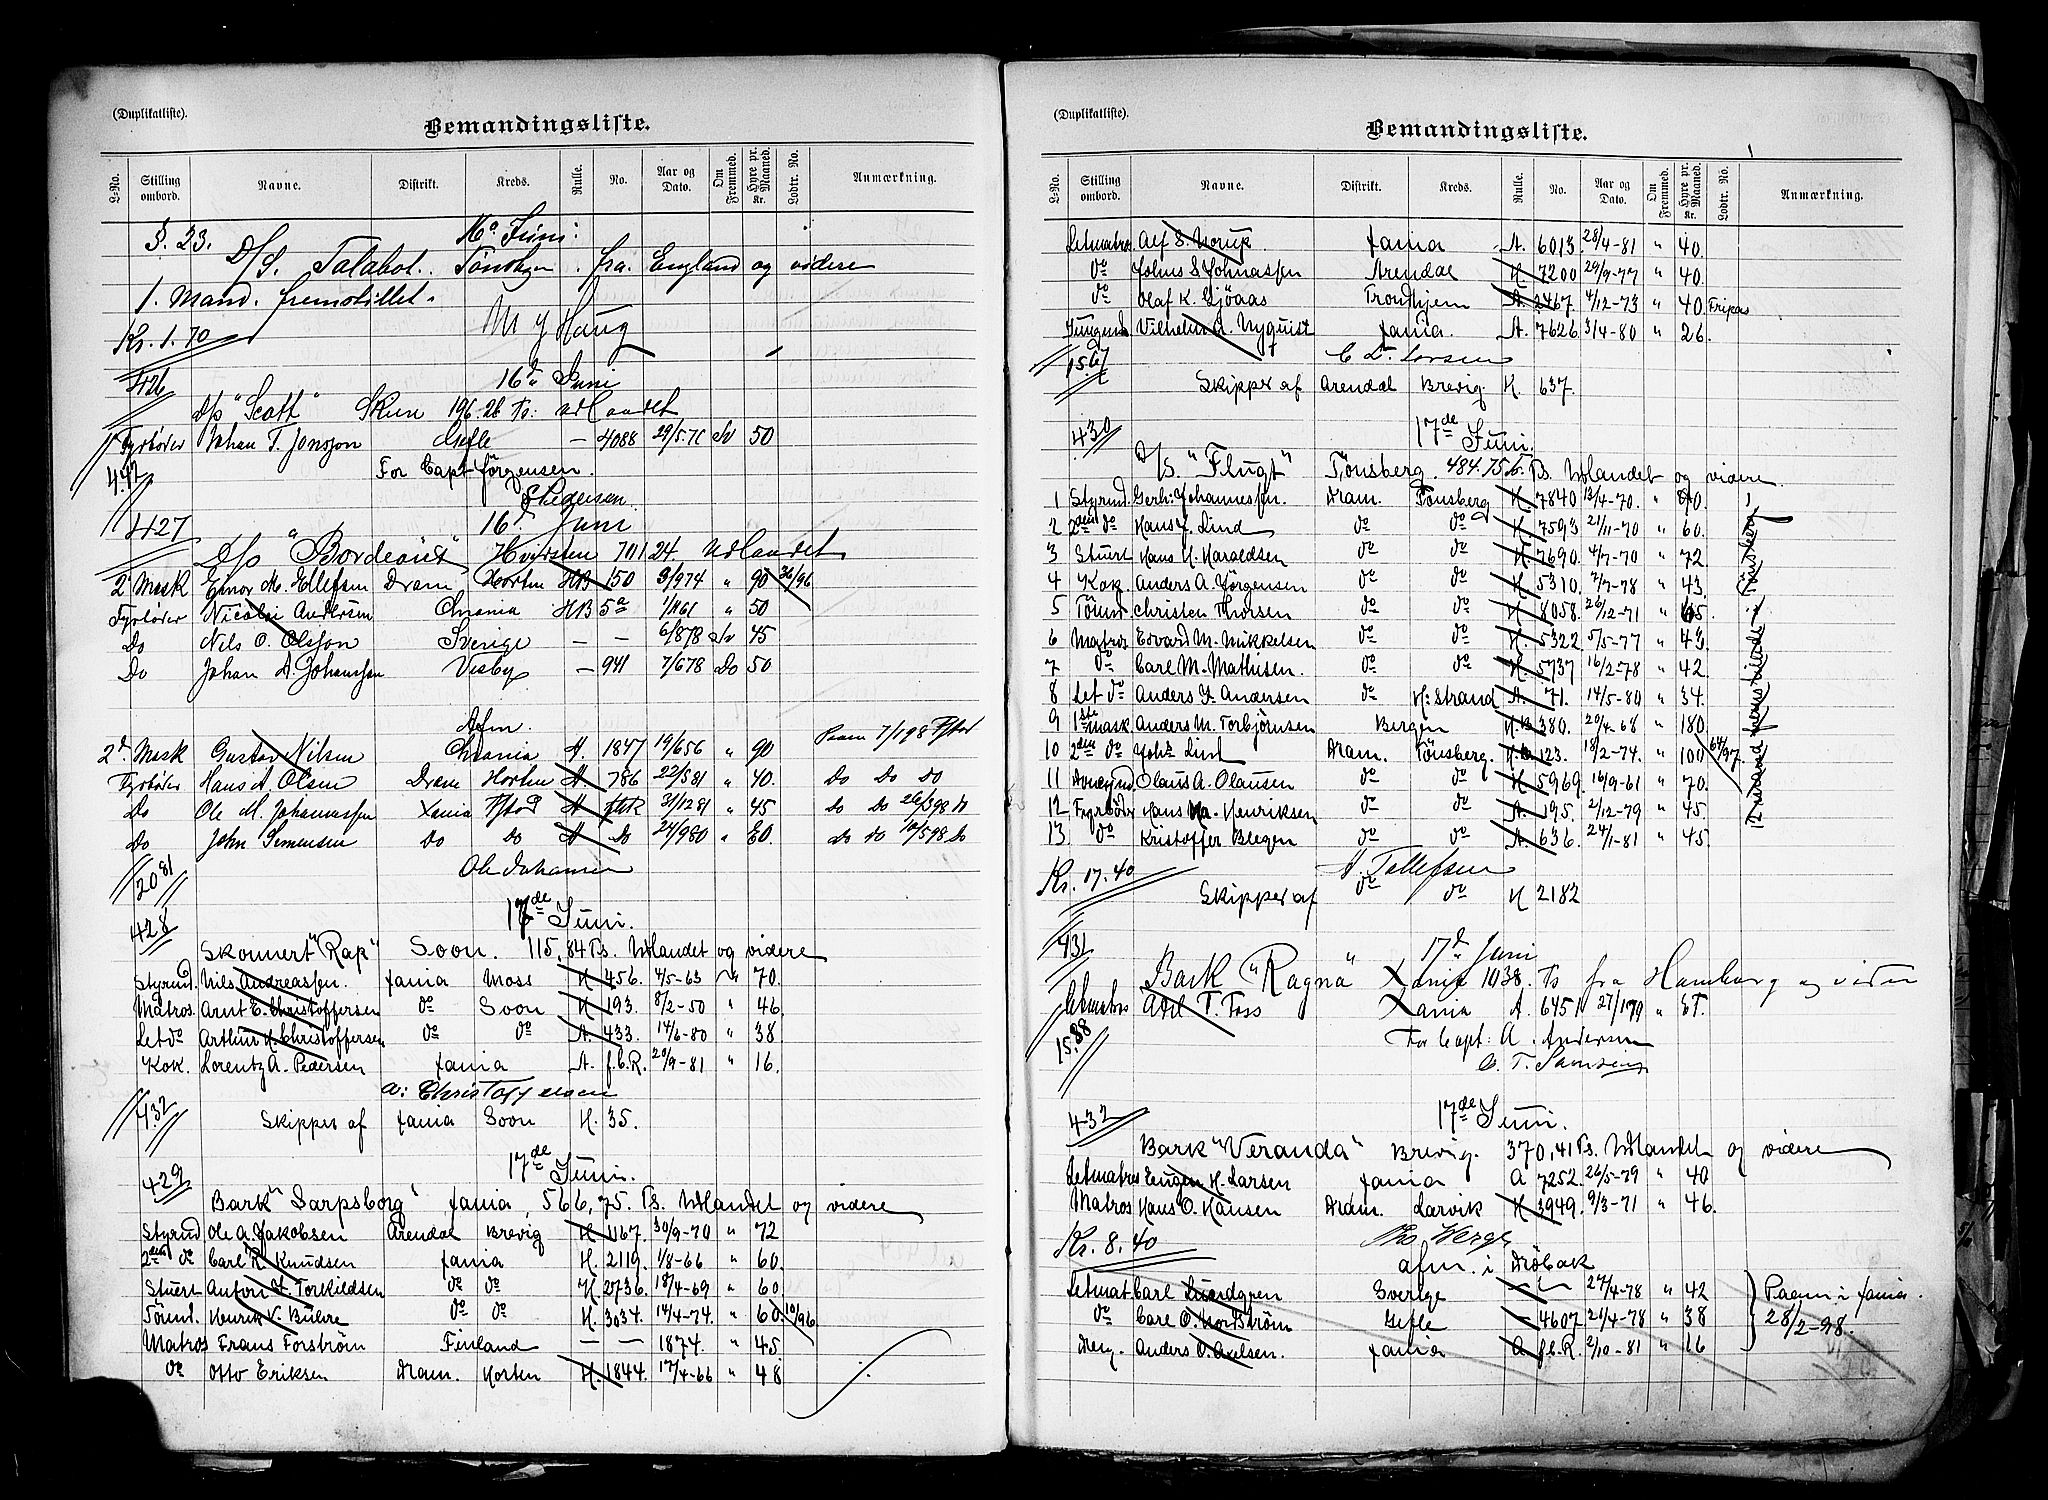 (Duplikatliste).
Bemandingsliste.
L-No. Stilling ombord. Navne. Distrikt. Kreds. Rulle. No. Aar og Dato. Om Fremmed. Hyre pr. Maaned. Kr. Lodtr. No. Anmærkning.
§. 23. Juni:
D/S. Talabot. Tönsbgn. fra England og videre
1. Mand. fremstillet.
Kr. 1.70 Haug
426 16d Juni
D/s "Scott" Skien 196.26 Ts: Udlandet
Fyrbøder Johan T. Jonsson Gefle — 4088 29/5.76 50
4.42 For Capt Jörgensen.
Pedersen
427 16d Juni
D/s "Bordeaux" Hvidsten 711 24 Udlandet
2 Mask Einar M. Ellefsen Dram Horten HB 150 3/974 " 90 34/96
Fyrbøder Nicolai Andersen Chrania HB 5a 1/161 " 50
Do Nils O. Olsson Sverige — — 6/878 45
Do Johan A. Johansson Visby — 941 7/678 Do 50
Afm.
2d. Mask Gustav Nilsen Chrania A. 1847 19/656 " 90 Paam 7/198 Fstad
Fyrbøder Hans A. Olsen Dram Horten A. 786 22/581 " 40. Do Do Do
Do Ole M. Johannessen Xania Fstad A 31/1281 " 45 Do Do 26/398 Do
Do John Simensen Do Do A Do 24/980 " 60. Do Do 10/598 Do
20.81 Ole Johansen
428 17de Juni.
Skonnert "Rap" Soon. 115,84 Ts. Udlandet og videre
Styrmd. Nils Andreassen. Xania Moss H 456. 4/5-63 " 70.
Matros. Arnt E. Christoffersen do Soon H 193. 8/2-50 " 46
Let do Arthur H. Christoffersen do do A. 433. 14/6-80 " 38
Kok. Lorentz A. Pedersen Xania A. f.b.R. 20/9-81 " 16.
4.32 A: Christoffersen
Skipper af Xania Soon H. 35.
429 17de Juni.
Bark "Sarpsborg" Xania, 566,75. Ts. Udlandet og videre
Styrmd Ole A. Jakobsen Arendal Brevig H 1167. 30/9-70 " 72
2den do Carl R. Knudsen Xania H. 2119. 1/8-66 " 60.
Stuert Anton F. Torkildsen do do H 2736. 18/4-69 " 60
Tömmd. Henrik V. Bülve do do H. 3034. 14/4-74. " 60. 10/96
Matros Frans Forström Finland — — 1874. " 45.
do Otto Eriksen Dram. Horten H. 1844. 17/4-66 " 48
(Duplikatliste).
Bemandingsliste.
L-No. Stilling ombord. Navne. Distrikt. Kreds. Rulle. No. Aar og Dato. Om Fremmed. Hyre pr. Maaned. Kr. Lodtr. No. Anmærkning.
Letmatros Alf S. Norup Xania A. 6013. 28/4-81 " 40.
do Johns S. Johnassen Arendal H 7200 29/9-77 " 40.
do Olaf K. Gjöaas Trondhjem A. 2467. 4/12-73 " 40. Fripas
Jungmd Vilhelm A. Nyquist Xania. A. 7626 3/4-80 " 26.
15.67 C. L. Larsen
Skipper af Arendal Brevig H. 637.
430 17de Juni.
D/S. "Flugt" Tönsberg. 484.75 Ts. Udlandet og videre.
1 Styrmd. Gerh: Johannessen. Dram. Tönsberg H 7840 13/4-70. " 90.
2 2den do Hans J. Lind do do H 7593 21/11-70 " 60.
3 Stuert Hans H. Haraldsen do do H. 7690. 4/7-70 " 72
4 Kok. Anders A. Jörgensen do do H 5310. 7/7-78 " 43.
5 Tömm. Christen Thorsen do do H 8058. 26/12-71 " 65.
6 Matros Edvard M. Mikkelsen do do H. 5322 5/5-77 " 43.
7 do Carl M. Mathisen do do H. 5737 16/2-78 " 42
8 Let do Anders F. Andersen do H: strand A. 71. 14/5-80 " 34.
9 1ste mask Anders M. Torbjörnsen Bergen H.B 380. 20/4-68 " 180.
10 2den do Joh: Lind Dram. Tönsberg. H.B 123. 18/2-74. " 100 64/97.
11 Donkymd Olaus A. Olausen do do H 5969. 16/9-61 " 70.
12 Fyrböder Hans Ma. Henriksen do do A. 195. 2/12-79 " 45.
13 do Kristoffer Blegen do do A. 636. 24/1-81 " 45.
12 mand fremstillede i Tönsberg
Kr. 17.40 A. Tollefsen
Skipper af do do H 2182
431 17d Juni
Bark "Ragna" Xania 1038. Ts fra Hamburg og videre
Letmatros Axel T. Foss Xania A. 6451 27/179 " 37.
15.88 For Capt: A. Andersen
C. T. Samsing
432 17de Juni.
Bark "Veranda" Brevig. 370,41 Ts. Udlandet og videre
Letmatros Eugen H. Larsen Xania A 7252. 26/5-79 " 40
Matros Hans O. Hansen Dram. Larvik H 3949. 9/3-71 " 46.
Kr. 8.40
afm. i Dröbak
Letmat Carl Lundgren Sverige — 27/4-78 " 42 Paam. i Xania.
do Carl O. Nordström Gefle — 4607 21/4-78 " 38 28/2-98.
Anders O. Axelsen. Xania A f.b.R. 2/10-81 " 16